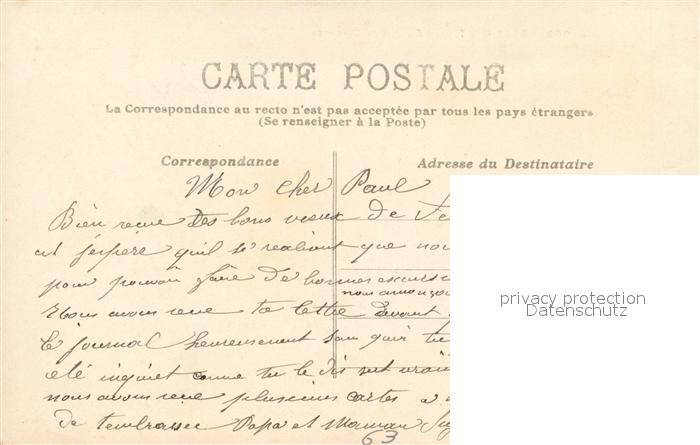 CARTE POSTALE
La Correspondance au recto n'est pas acceptée par tous les pays étrangers
(Se renseigner à la Poste)
Correspondance
Adresse du Destinataire
Mon cher Paul
Bien reçue tes bons vœux de
et j'espère qu'il se realisent que nou
pour pouvoir faire de bonnes excurs
nous avons
Nous avons reçue ta lettre devant
le journal heureusement sans quoi tu
été inquiet comme tu le dis
nous avons reçue plusieurs cartes
de t'embrasser Papa et Maman
63
privacy protection
Datenschutz